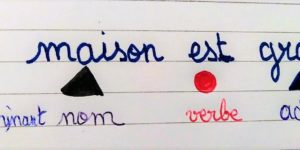 maison est gra
inant nom verbe ad